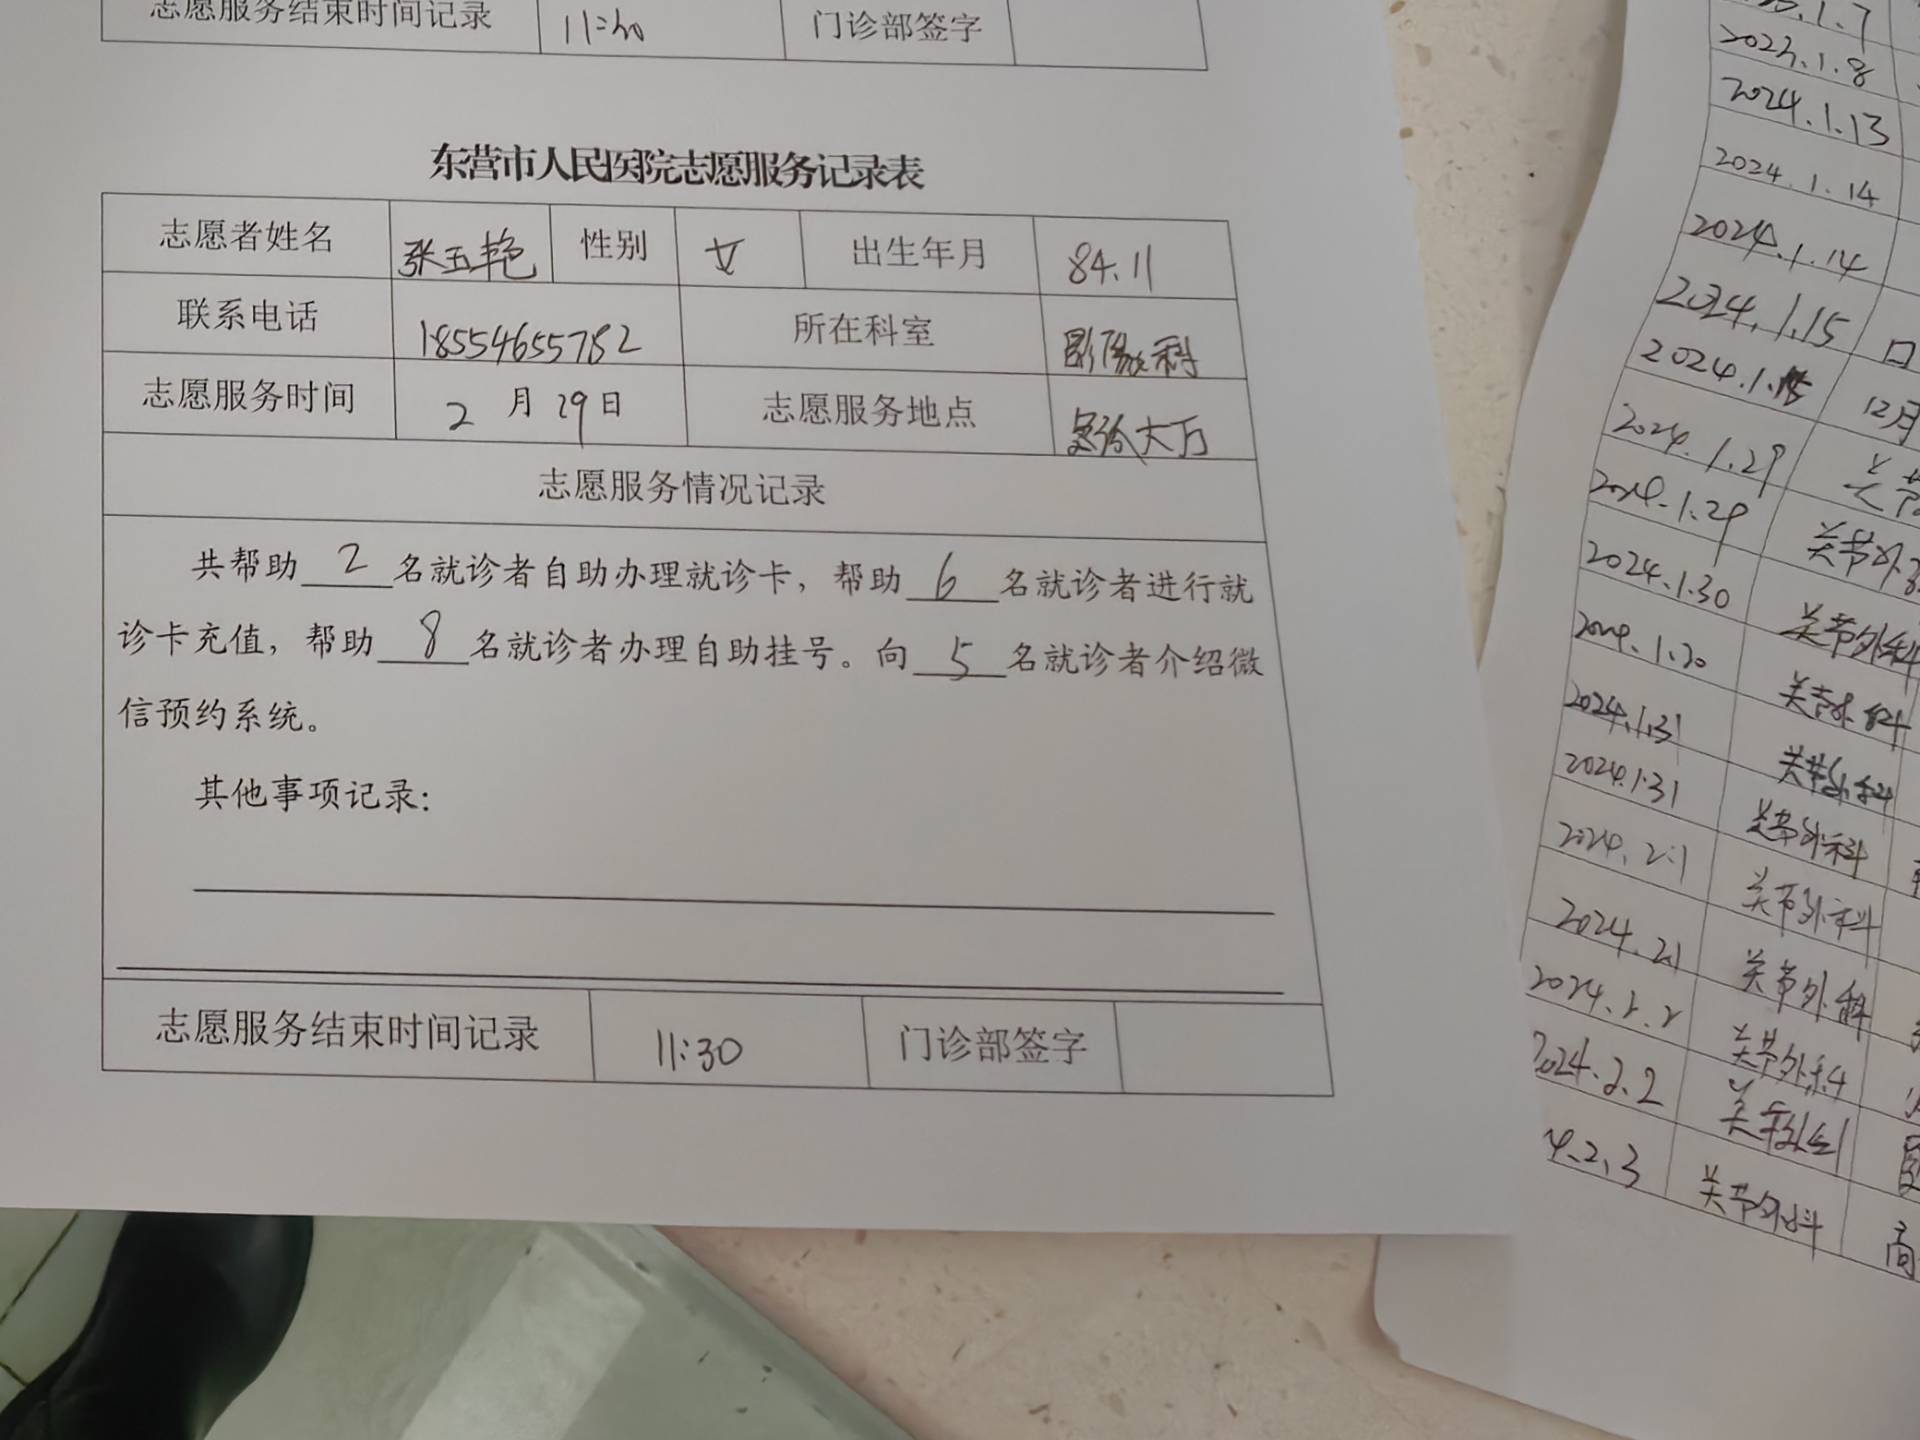 志愿服务结束时间记录 11:30 门诊部签字
东营市人民医院志愿服务记录表
志愿者姓名 张五艳 性别 女 出生年月 84.11
联系电话 18554655782 所在科室 影像科
志愿服务时间 2月29日 志愿服务地点 大厅
志愿服务情况记录
共帮助 2 名就诊者自助办理就诊卡，帮助 6 名就诊者进行就
诊卡充值，帮助 8 名就诊者办理自助挂号。向 5 名就诊者介绍微
信预约系统。
其他事项记录：
志愿服务结束时间记录 11:30 门诊部签字
1.7
2023.1.8
2024.1.13
2024.1.14
2024.1.14
2024.1.15 口
2024.1. 12月
2024.1.29 关节
2024.1.29 关节外
2024.1.30 关节外科
2024.1.30 关节外科
2024.1.31 关节外科
2024.1.31 关节外科
2024.2.1 关节外科
2024.2.1 关节外科
2024.2.2 关节外科
2024.2.2 关节外科
4.2.3 关节外科 高